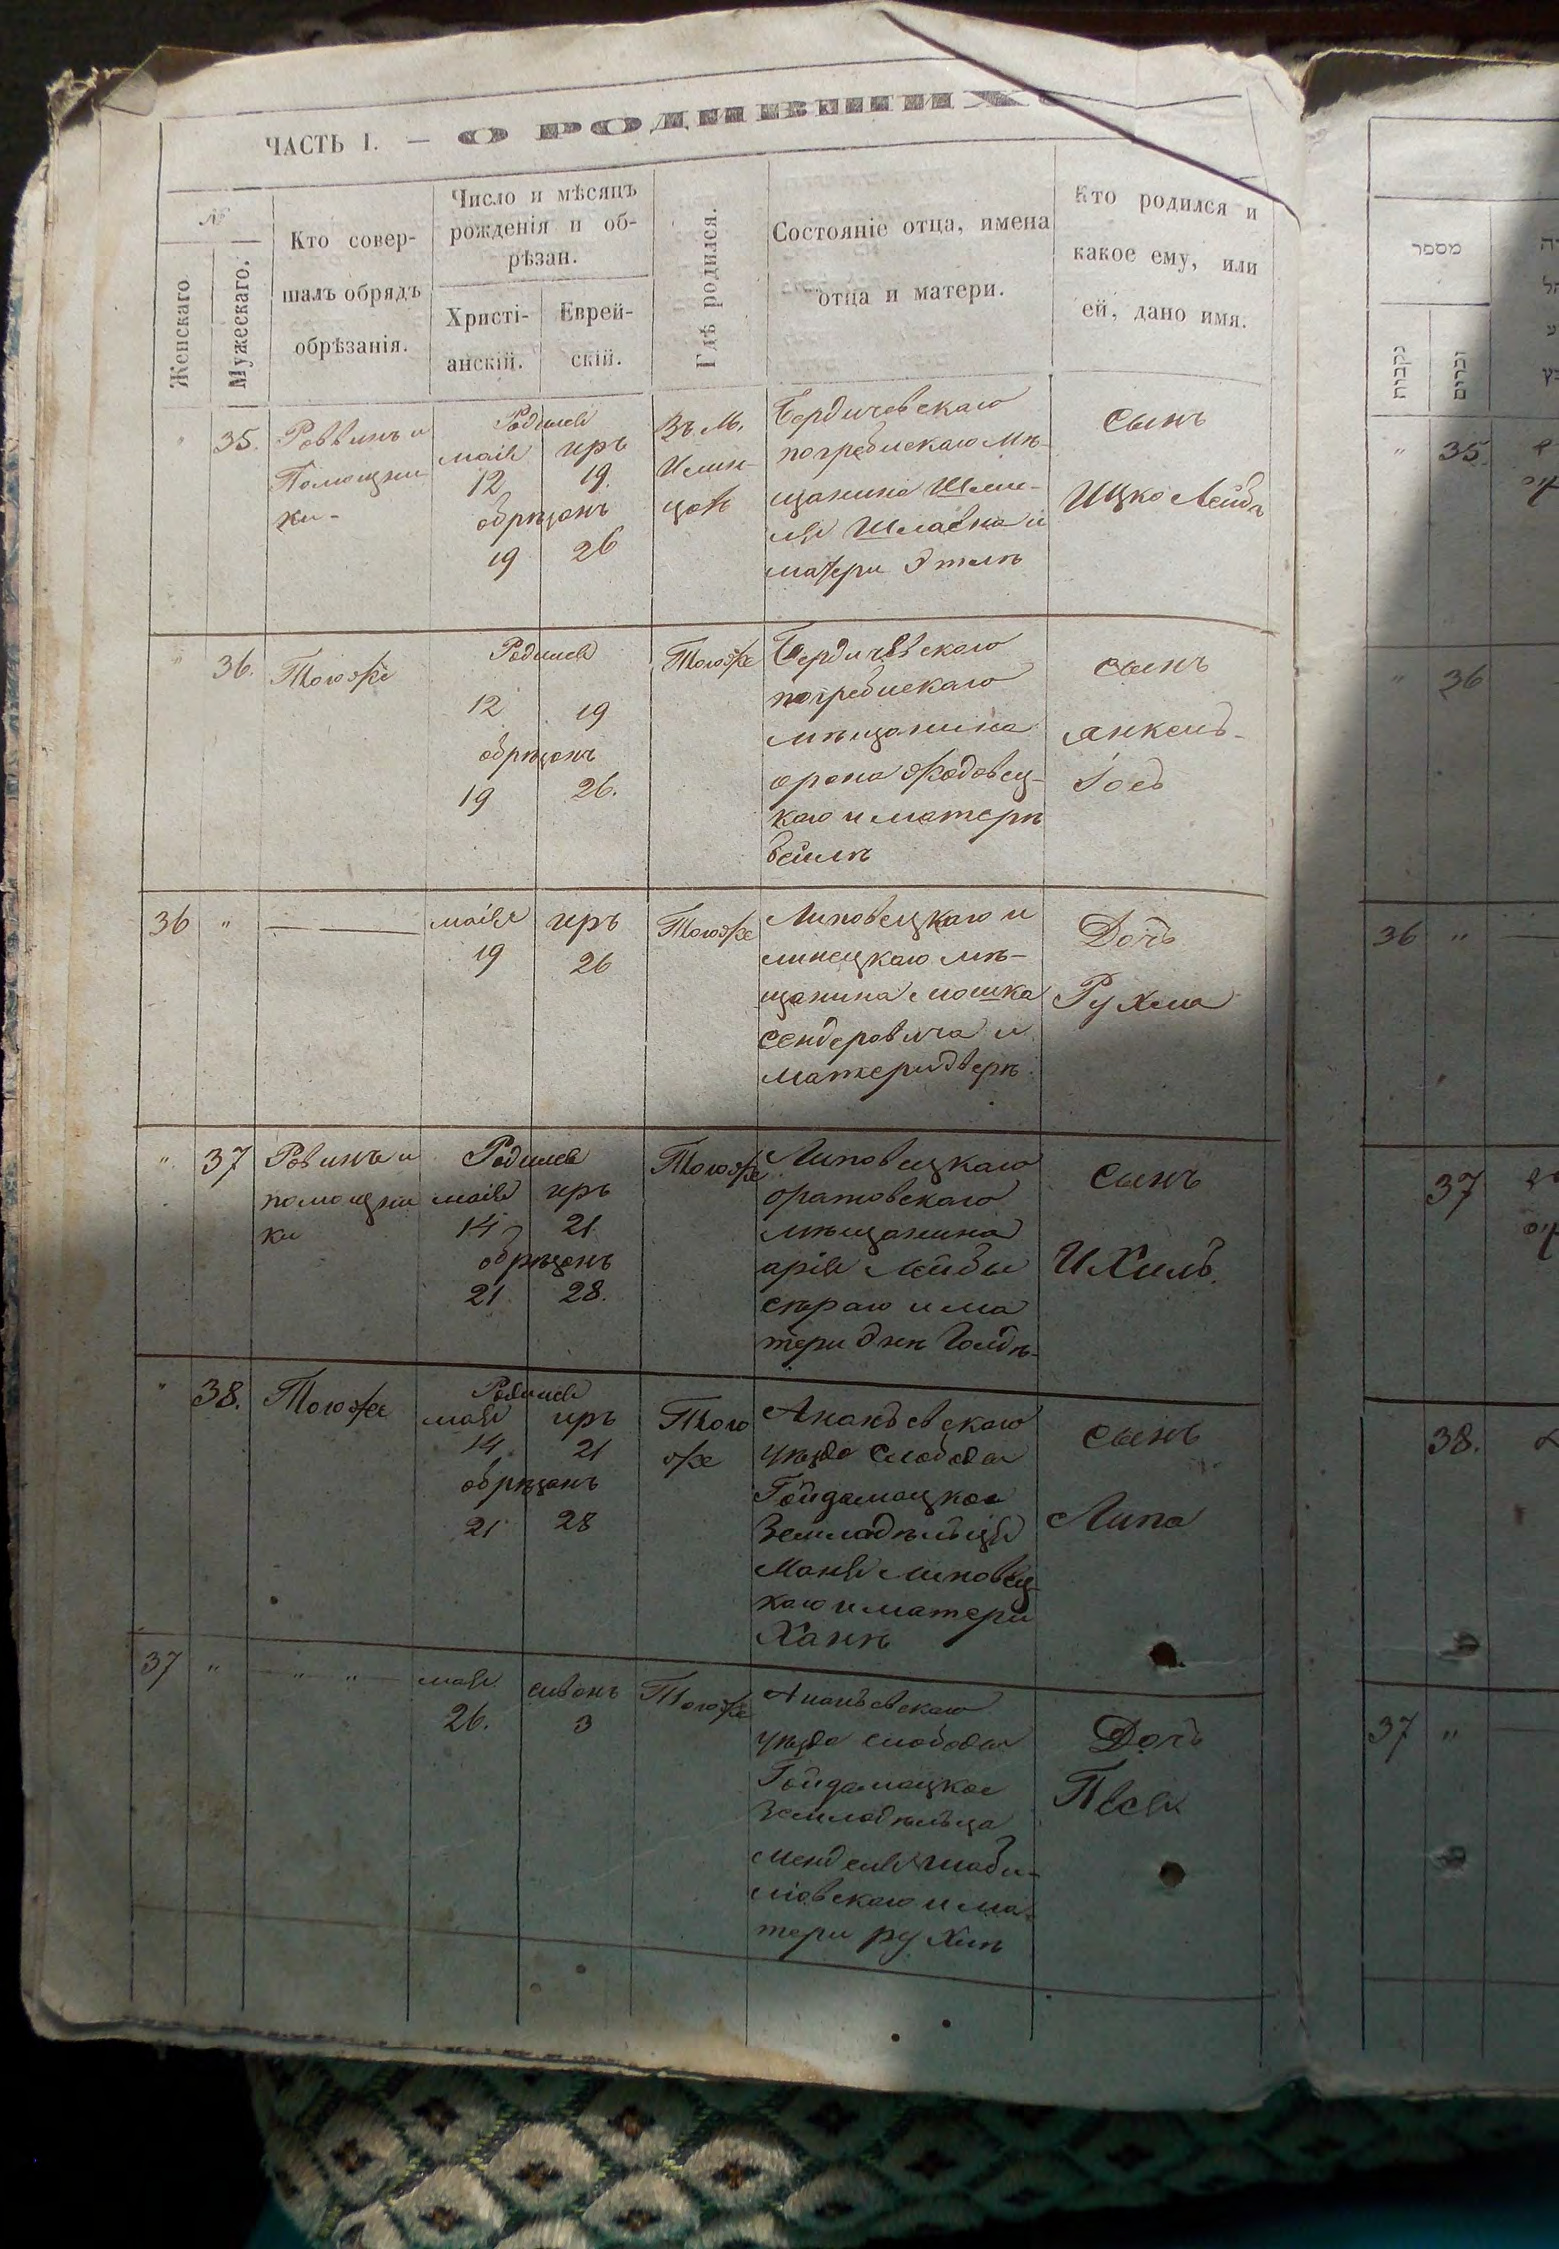 ЧАСТЬ I. — О РОДИВШИХС
№
Женскаго
Мужескаго.
Кто совер-
шалъ обрядъ
обрѣзанія.
Число и мѣсяцъ
рожденія и об-
рѣзан.
Христі-
анскій.
Еврей-
скій.
Гдѣ родился.
Состояніе отца, имена
отца и матери.
Кто родился и
какое ему, или
ей, дано имя.
" 35.
Раввинъ и
Помощни
ки-
Родился
маія иръ
12 19.
обрѣзанъ
19 26
Въ м.
Илин-
цахъ
Бердичевскаго
погребискаго мѣ-
щанина
матери Этелъ
сынъ
Ицко Лейбъ
" 36.
Тогоже
Родился
12 19
обрѣзанъ
19 26.
Тогоже
Бердичевскаго
погребискаго
мѣщанина
каго и матери
Бейлѣ
сынъ
Янкель-
36 "
маія иръ
19 26
Тогоже
Липовецкаго и
линецкаго мѣ-
щанина мошка
сендеровича и
матери двери
Дочь
Рухла
" 37
Равинъ и
помощни
ки
Родился
маія иръ
14 21
обрѣзанъ
21 28.
Тогоже
Липовецкаго
оратовскаго
мѣщанина
арія Лейбы
сѣраго и ма
сынъ
Ихиль.
" 38.
Тогоже
Родился
мая иръ
14 21
обрѣзанъ
21 28
Того
же
Ананьевскаго
уѣзда слободы
Гойдамацкое
Земледѣльца
каго и матери
Ханѣ
сынъ
Липа
37 "
" "
мая сивонъ
26. 3
Тогоже
Ананьевскаго
уѣзда слободы
Гойдамацкое
Земледѣльца
менделя
ловскаго и ма-
тери рухлѣ
Дочь
Песя
מספר
נקבות
זכרים
" 35.
" 36
36 "
37
38.
37 "